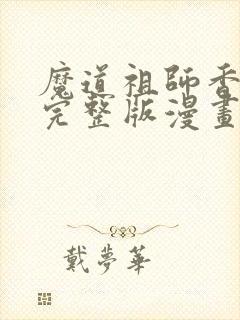 魔道祖師香
完整版漫畫
戴夢華